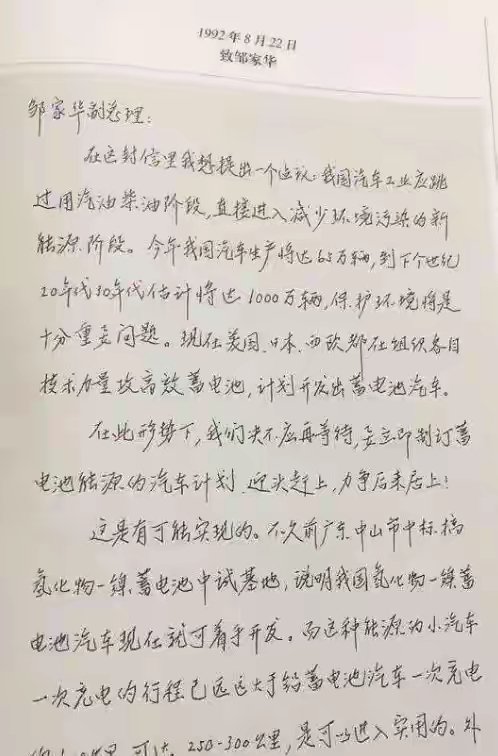 1992年8月22日
致邹家华
邹家华副总理:
在这封信里我想提出一个建议:我国汽车工业应跳
过用汽油柴油阶段,直接进入减少环境污染的新
能源阶段。今年我国汽车生产将达65万辆,到下个世纪
20年代30年代估计将达1000万辆,保护环境将是
十分重要问题。现在美国、日本、西欧都在组织各自
技术力量攻高效蓄电池,计划开发出蓄电池汽车。
在此形势下,我们决不应再等待,要立即制订蓄
电池能源的汽车计划,迎头赶上,力争后来居上!
这是有可能实现的。不久前广东中山市中标搞
氢化物—镍蓄电池中试基地,说明我国氢化物—镍蓄
电池汽车现在就可着手开发。而这种能源的小汽车
一次充电的行程已远远大于铅蓄电池汽车一次充电
可达250-300公里,是可以进入实用的。外